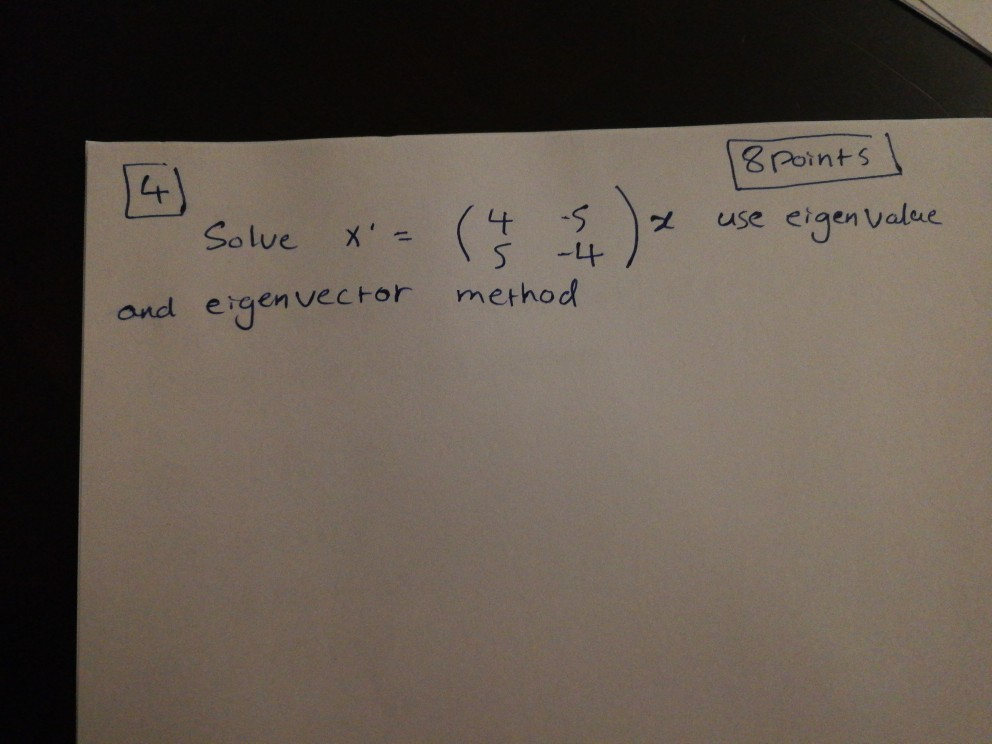 8 points
4
Solve x' = ( 4 -5 ) x use eigenvalue
5 -4
and eigenvector method